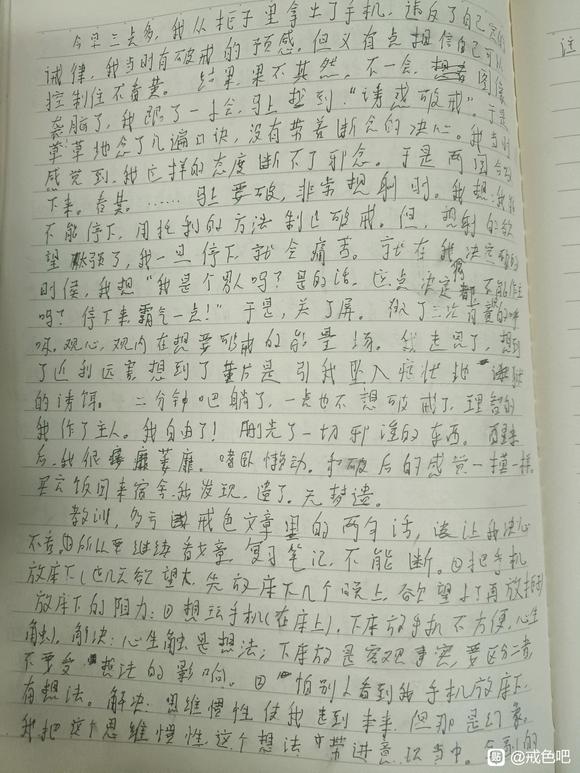 今早三点多,我从柜子里拿出了手机,违反了自己定的
戒律,我当时有破戒的预感。但又有点相信自己可以
控制住不看黄。结果,果不其然,不一会,图像
袭脑了,我跟了一会,马上想到"诱惑破戒"。于是
草草地念了几遍口诀,没有带着断念的决心。我当时
感觉到,我这样的态度断不了邪念。于是两图合
下来。看黄。……马上要破,非常想射时。我想:我能
不能停下,用 的方法制止破戒。但,想射的欲
望 强了,我一旦停下就会痛苦。就在我决定破的
时候,我想"我是个男人吗?是的话,这点决定都不能做主
吗?停下来霸气一点!"于是,关了屏。做了三次 的呼
吸。观心,观内在想要破戒的能量场。然走愿了,想到
了近利远害,想到了黄片是引我坠入症状地
的诱饵。二分钟吧躺了,一点也不想破戒了,理智的
我作了主人。我自由了!删光了一切邪淫的东西。醒来
后,我很疲靡萎靡。嗜卧懒动。和破后的感觉一模一样。
买云饭回来宿舍,我发现,遗了。无梦遗。
教训,多亏 戒色文章里的两句话,该让我决心
不看。①所以要继续看文章,复习笔记,不能断。②把手机
放座下(这几天欲望大,先放座下几个晚上,欲望少了再放
放座下的阻力:①想玩手机(在座上),下座放手机不方便,心生
触)。解决:心生触是想法;下座放是客观事实,要区分二者,
不要受 想法的影响。② 怕别人看到我手机放座下,
有想法。解决:思维惯性使我走到未来,但那是幻象。
我把这个思维惯性,这个想法带进意识当中。
注
贴 @戒色吧